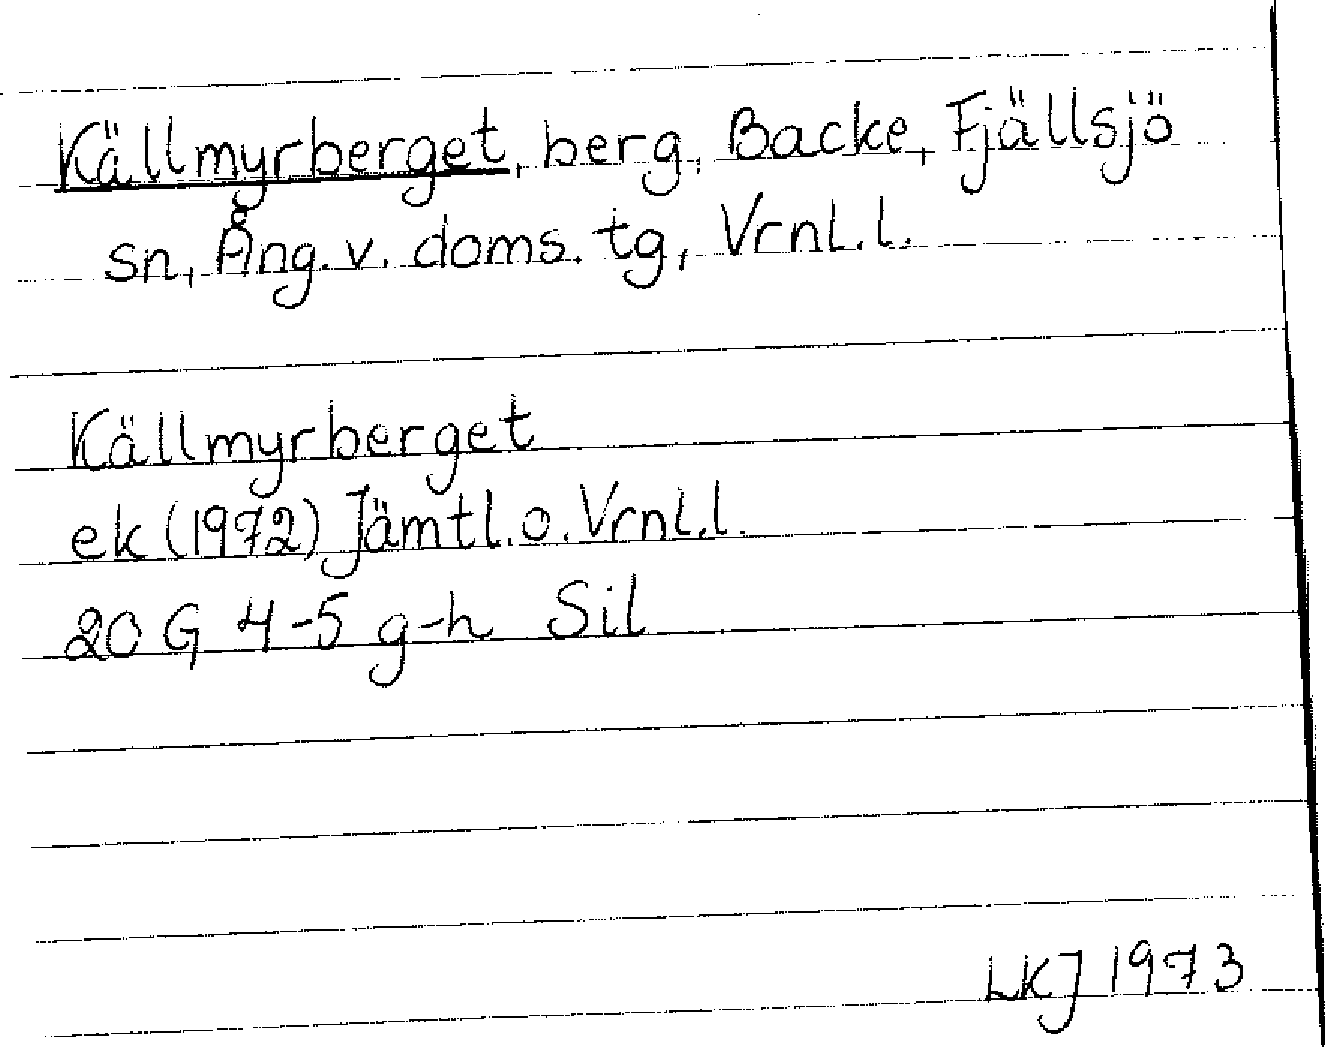 Källmyrberget, berg, Backe, Fjällsjö
sn, Ång. v. doms. tg, Vrnl. l.
Källmyrberget
ek (1972) Jämtl. o. Vrnl. l.
20 G 4-5 g-h Sil
LKJ 1973